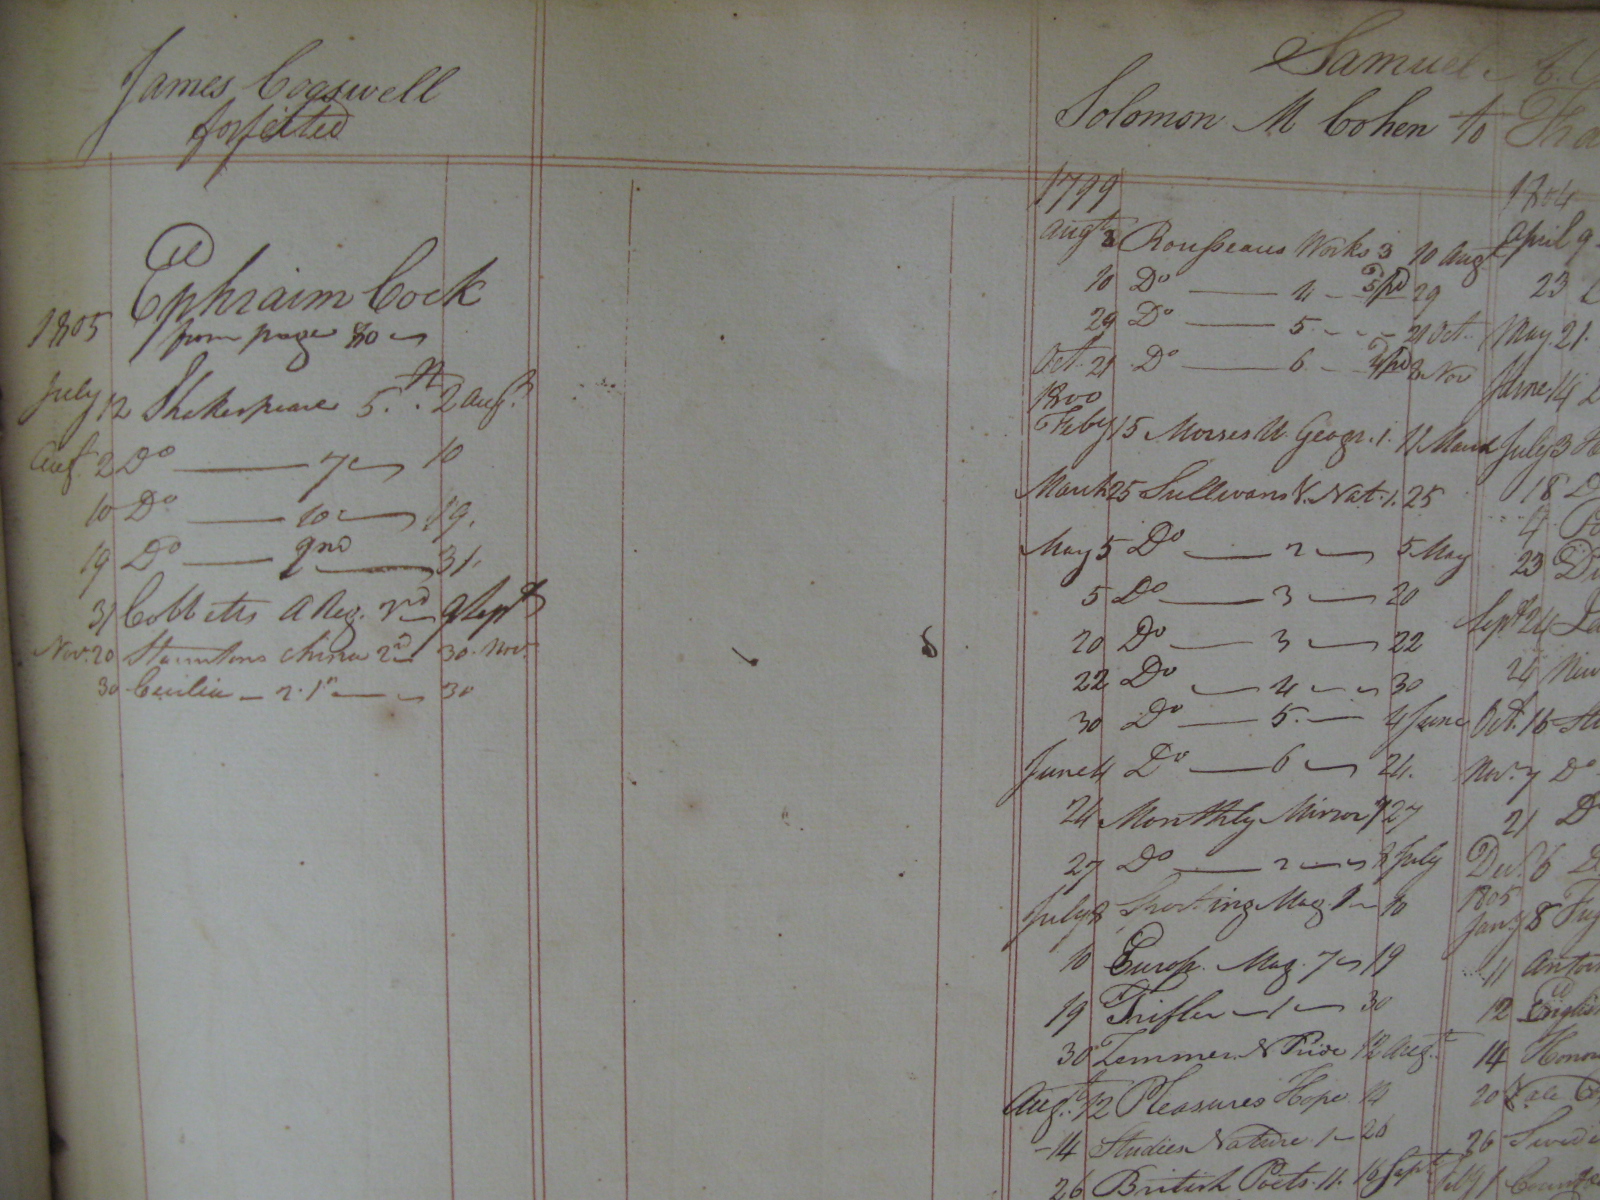 James Cogswell
forfeited
Ephraim Cock
1805
from page 80
July 12 Shakespeare 5.th 2 Augt.
Augt. 2 Do 7 10
10 Do 10 19.
19 Do 9nd 31.
31 Cobbetts A Reg. 2nd 9 Sept
Nov. 20 Stauntons China 2d 30 Nov.
30 Cecilia 2. 1st 30
Samuel A.
Solomon M Cohen to
1799
Augt 8 Rousseaus Works 3 10 Augt
10 Do 4 3/pd 29
29 Do 5 21 Oct.
Oct. 21 Do 6 2/pd 8 Nov
1800
Feby 15 Morses U. Geogr. 1. 11 March
March 25 Sullivans V. Nat. 1. 25
May 5 Do 2 5 May
5 Do 3 20
20 Do 3 22
22 Do 4 30
30 Do 5 4 June
June 4 Do 6 24.
24 Monthly Mirror 27
27 Do 2 8 July
July 8 Sporting Mag. 1 10
10 Europ. Mag. 7 19
19 Trifler 1 30
30 & Pride 12 Augt.
Augt. 12 Pleasures Hope 14
14 Studies Nature 1 26
26 British Poets. 11. 16 Sept
1804
April 9
23
May 21.
June 14
July 3
18
4
23
Sept 24
24
Oct. 16
Nov. 7 Do
21 D
Decr. 6
1805
Jany 8
11
12
14
20
26